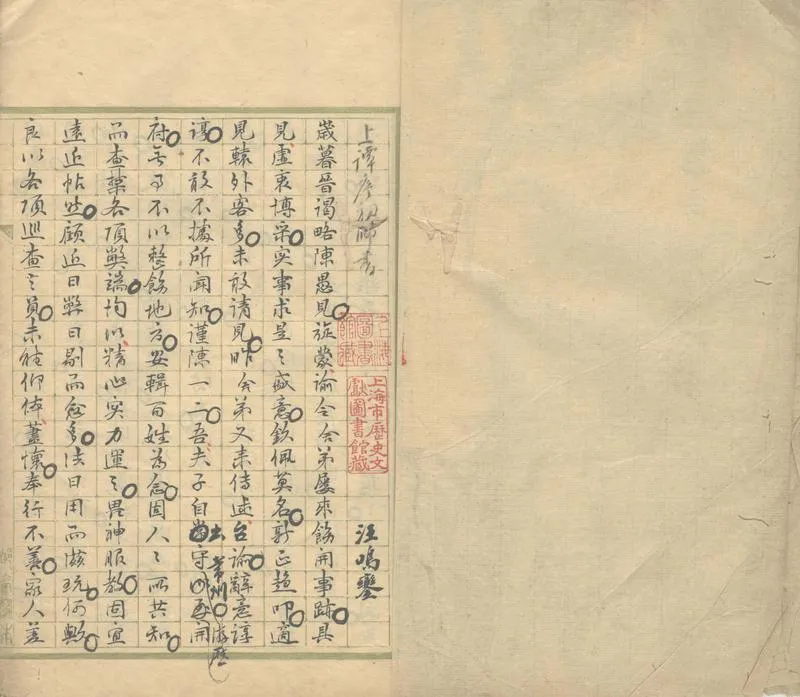 上譚序初師書
汪鳴鑾
歲暮晉謁略陳愚見旋蒙諭令舍弟屢來飭開事跡具
見虛衷博采實事求是之盛意欽佩莫名新正趨叩適
見轅外客多未敢請見昨舍弟又來傳述台諭辭意諄
諄不敢不據所聞知謹陳一二吾夫子自出守常州游歷開
府無日不以整飭地方安輯百姓為念固人之所共知
而查禁各項弊端均以精心實力運之畏神服教固宜
遠近帖然顧近日弊日剔而愈多法日用而滋玩何歟
良以各項巡查之員未能仰体藎懷奉行不善家人差
上海圖書館藏
上海市歷史文獻圖書館藏